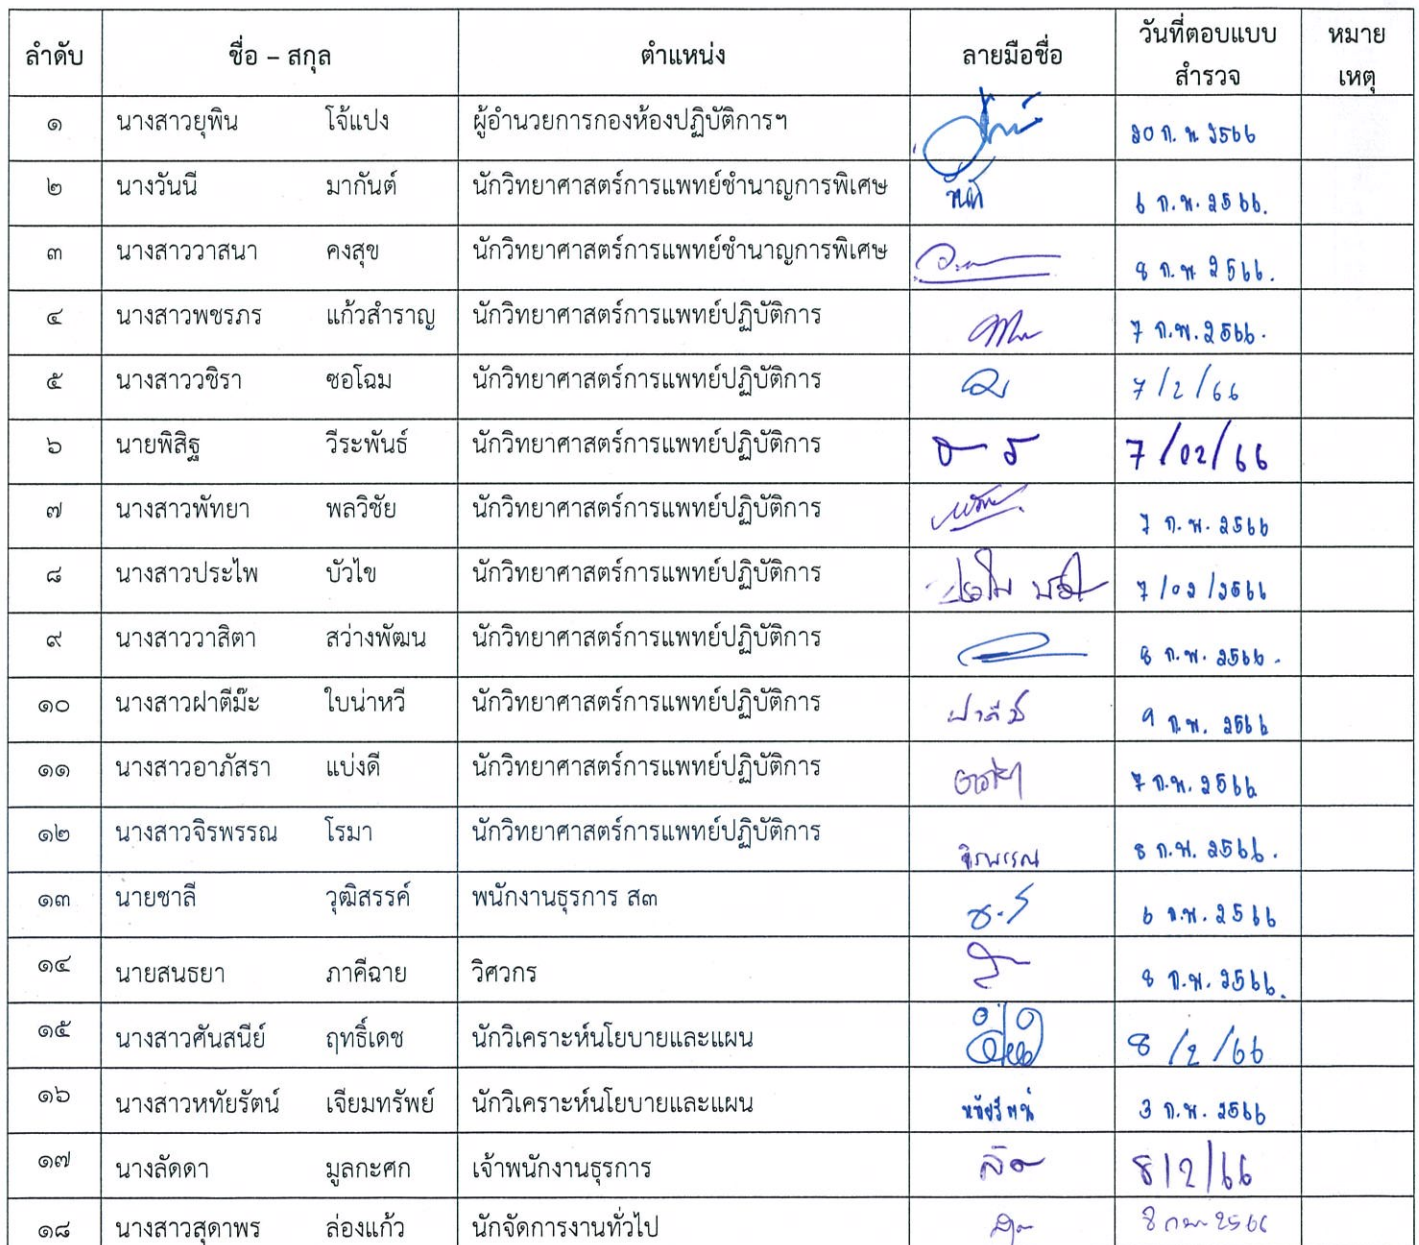 ลำดับ ชื่อ – สกุล ตำแหน่ง ลายมือชื่อ วันที่ตอบแบบสำรวจ หมายเหตุ
๑ นางสาวยุพิน โจ้แปง ผู้อำนวยการกองห้องปฏิบัติการฯ ก.พ. 2566
๒ นางวันนี มากันต์ นักวิทยาศาสตร์การแพทย์ชำนาญการพิเศษ วันนี 6 ก.พ. 2566.
๓ นางสาววาสนา คงสุข นักวิทยาศาสตร์การแพทย์ชำนาญการพิเศษ 8 ก.พ 2566.
๔ นางสาวพชรภร แก้วสำราญ นักวิทยาศาสตร์การแพทย์ปฏิบัติการ 7 ก.พ. 2566.
๕ นางสาววชิรา ซอโฉม นักวิทยาศาสตร์การแพทย์ปฏิบัติการ 7/2/66
๖ นายพิสิฐ วีระพันธ์ นักวิทยาศาสตร์การแพทย์ปฏิบัติการ 7/02/66
๗ นางสาวพัทยา พลวิชัย นักวิทยาศาสตร์การแพทย์ปฏิบัติการ 7 ก.พ. 2566
๘ นางสาวประไพ บัวไข นักวิทยาศาสตร์การแพทย์ปฏิบัติการ 7/02/2566
๙ นางสาววาสิตา สว่างพัฒน นักวิทยาศาสตร์การแพทย์ปฏิบัติการ 8 ก.พ. 2566.
๑๐ นางสาวฝาตีม๊ะ ใบน่าหวี นักวิทยาศาสตร์การแพทย์ปฏิบัติการ 9 ก.พ. 2566
๑๑ นางสาวอาภัสรา แบ่งดี นักวิทยาศาสตร์การแพทย์ปฏิบัติการ 7 ก.พ. 2566
๑๒ นางสาวจิรพรรณ โรมา นักวิทยาศาสตร์การแพทย์ปฏิบัติการ จิรพรรณ 8 ก.พ. 2566.
๑๓ นายชาลี วุฒิสรรค์ พนักงานธุรการ ส๓ 6 ก.พ. 2566
๑๔ นายสนธยา ภาคีฉาย วิศวกร 8 ก.พ. 2566.
๑๕ นางสาวศันสนีย์ ฤทธิ์เดช นักวิเคราะห์นโยบายและแผน 8/2/66
๑๖ นางสาวหทัยรัตน์ เจียมทรัพย์ นักวิเคราะห์นโยบายและแผน หทัยรัตน์ 3 ก.พ. 2566
๑๗ นางลัดดา มูลกะศก เจ้าพนักงานธุรการ 8/2/66
๑๘ นางสาวสุดาพร ล่องแก้ว นักจัดการงานทั่วไป 8 กพ 2566